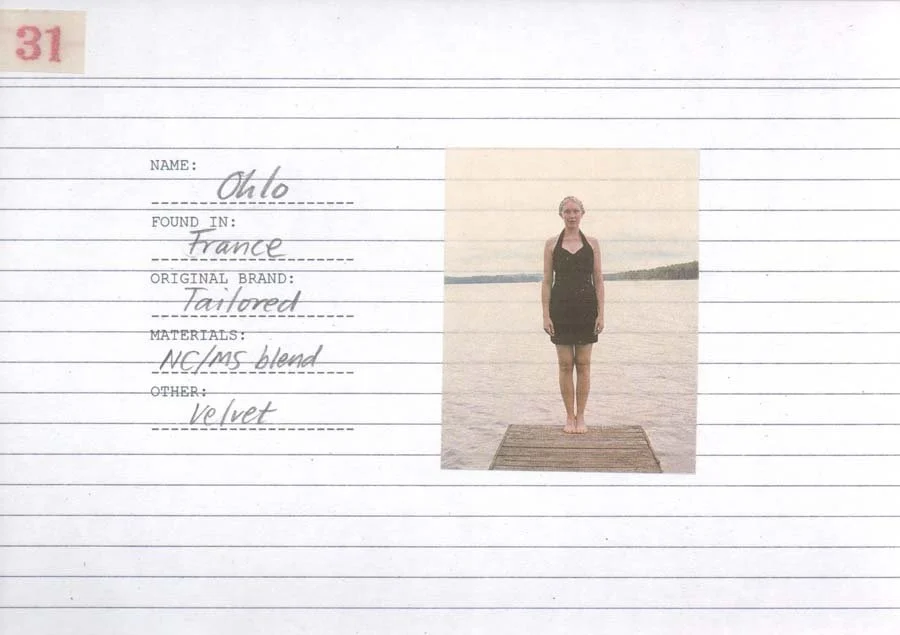 31
NAME:
Ohlo
FOUND IN:
France
ORIGINAL BRAND:
Tailored
MATERIALS:
NC/MS blend
OTHER:
Velvet